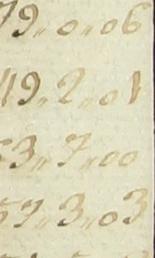 79,,0,,06
19,,2,,01
53,,7,,00
57,,3,,03